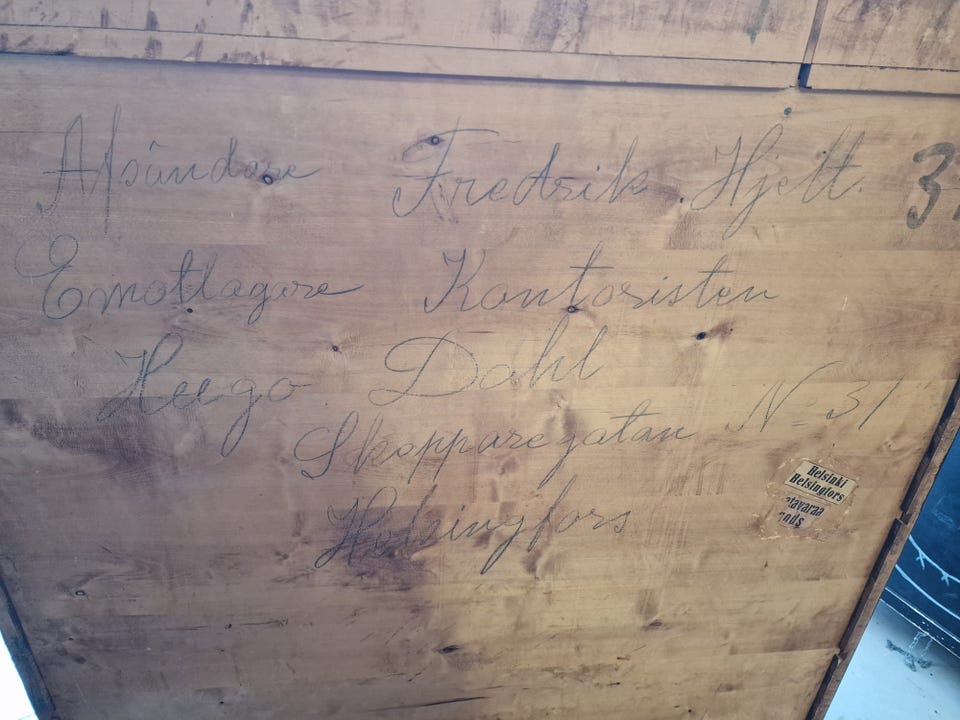 Afsändare Fredrik Hjelt. 3
Emottagare Kontoristen
Hugo Dahl
Skepparegatan N 31
Helsingfors
Helsinki
Helsingfors
tavaraa
ods